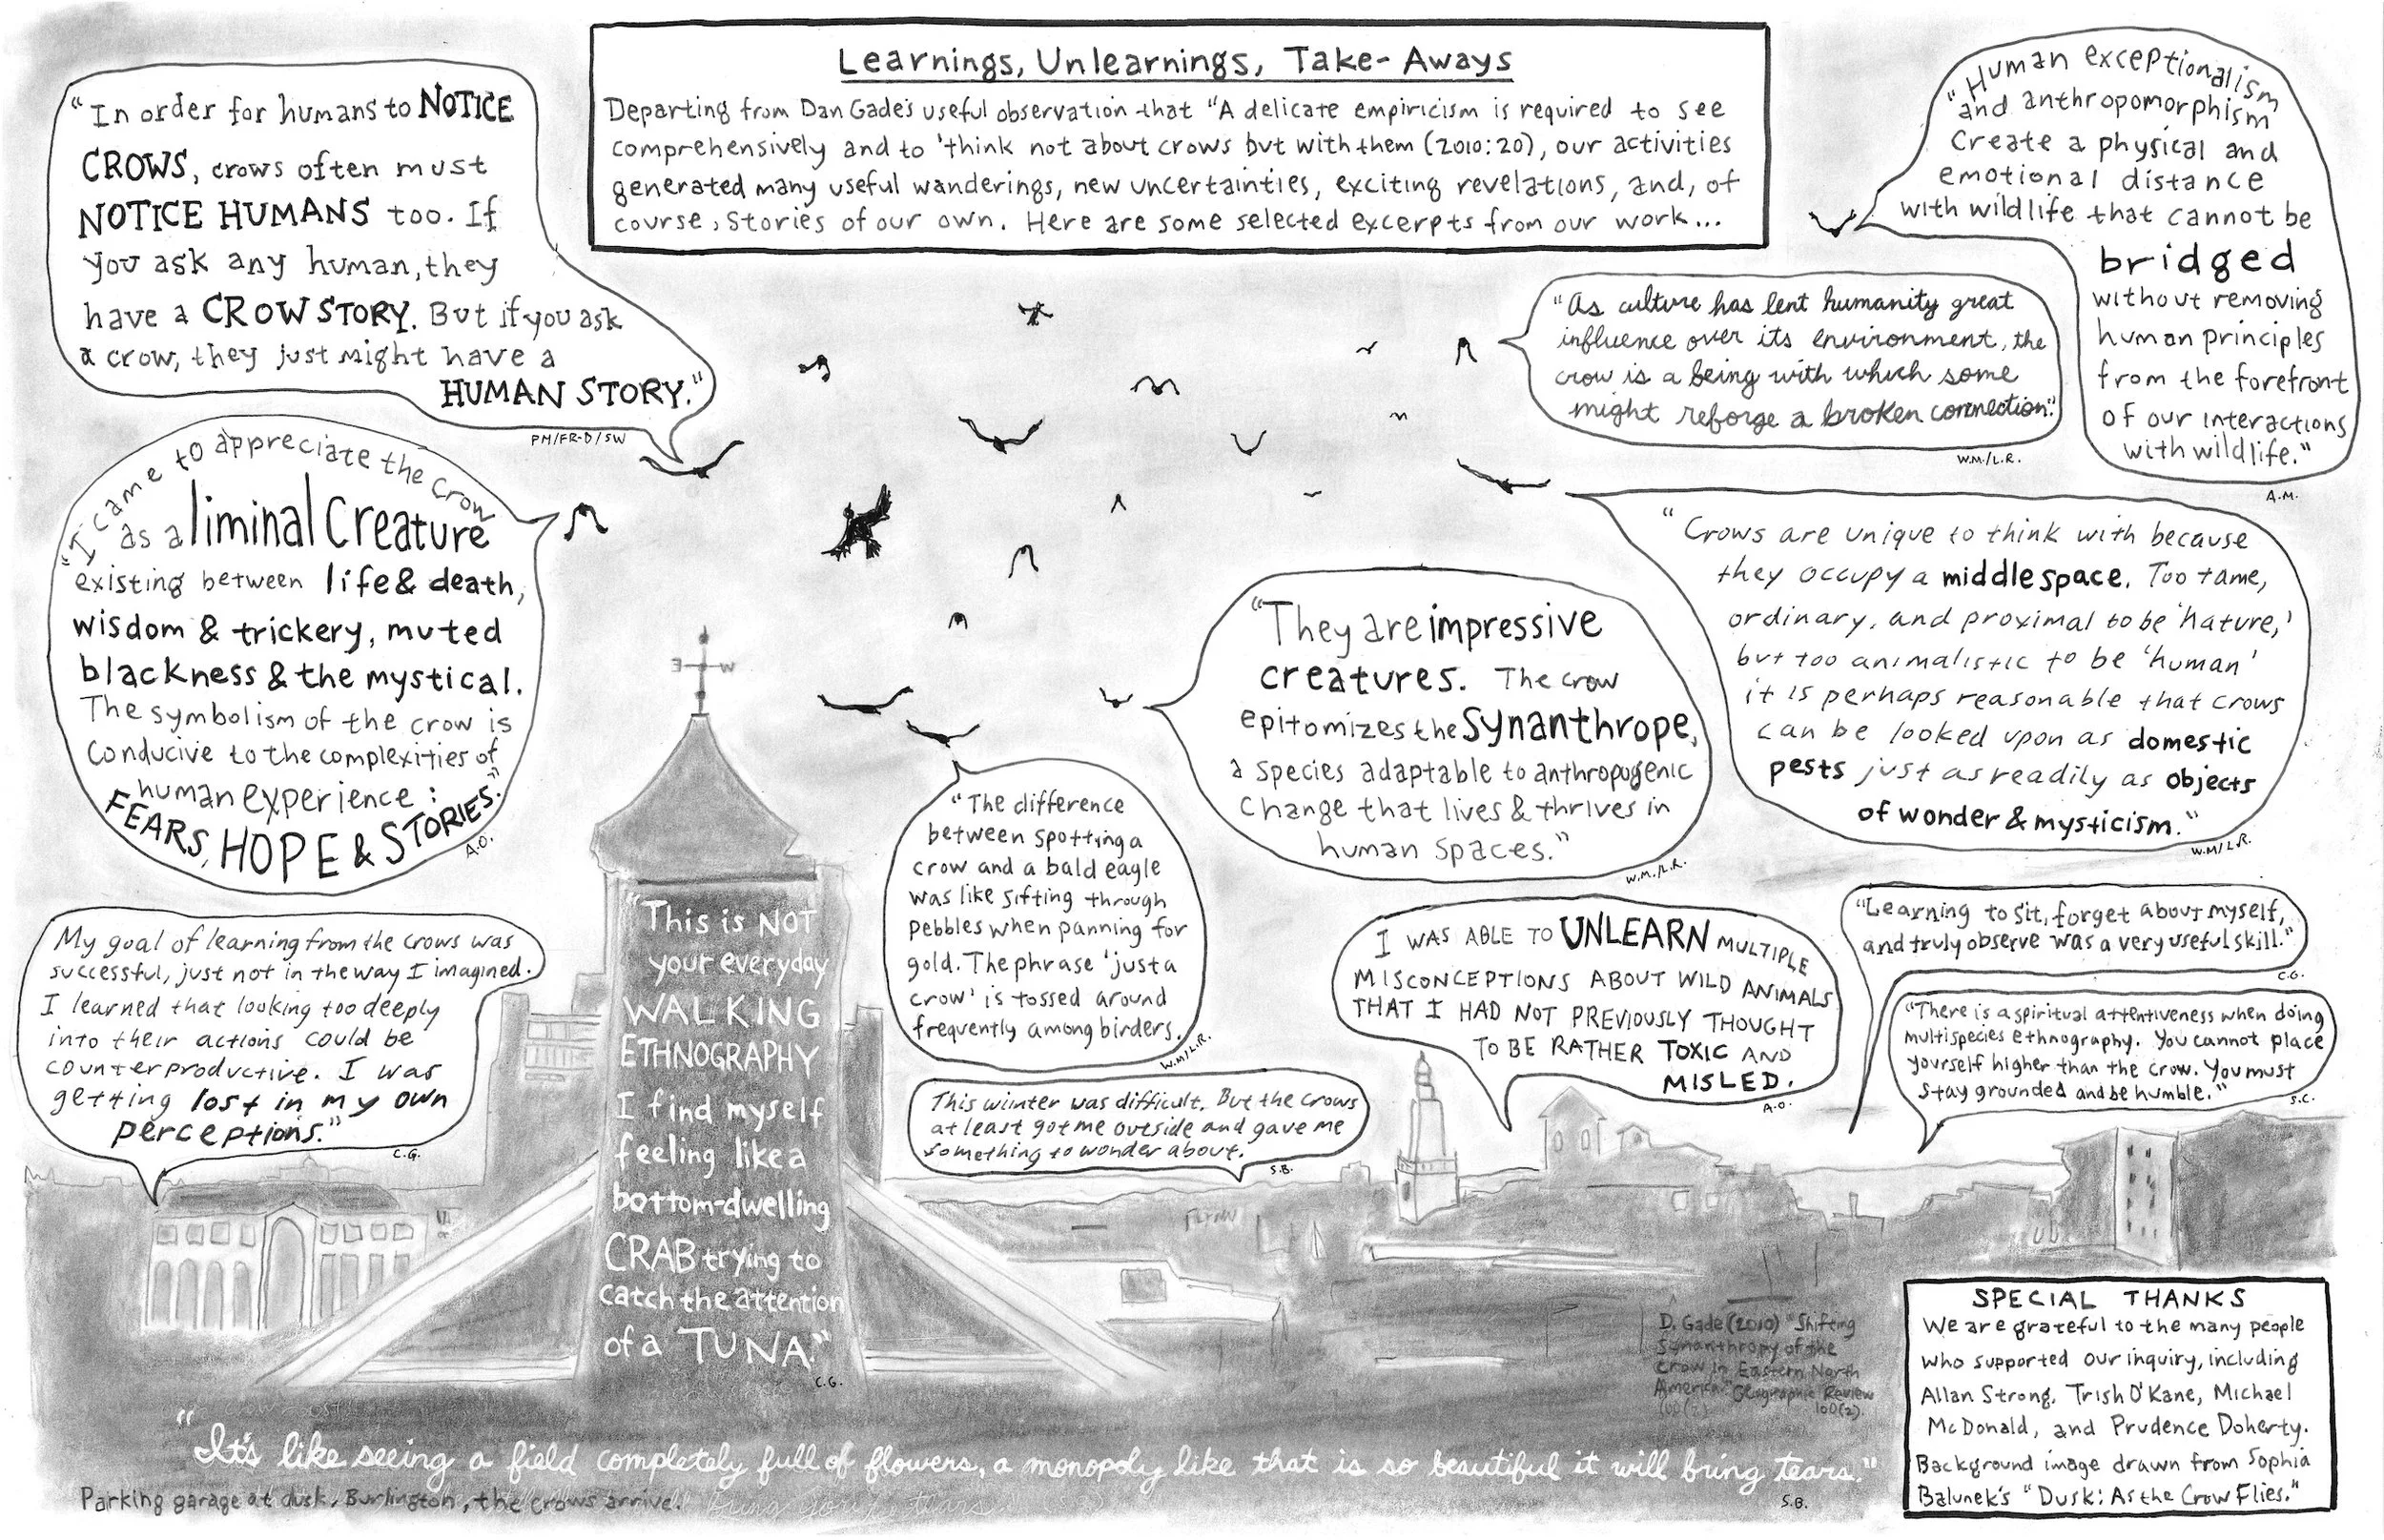 Learnings, Unlearnings, Take-Aways
Departing from Dan Gade's useful observation that "A delicate empiricism is required to see
comprehensively and to 'think not about crows but with them (2010:20), our activities
generated many useful wanderings, new uncertainties, exciting revelations, and, of
course, stories of our own. Here are some selected excerpts from our work...
"In order for humans to NOTICE
CROWS, crows often must
NOTICE HUMANS too. If
you ask any human, they
have a CROW STORY. But if you ask
a crow, they just might have a
HUMAN STORY."
PM/FR-D/SW
"Human exceptionalism
and anthropomorphism
create a physical and
emotional distance
with wildlife that cannot be
bridged
without removing
human principles
from the forefront
of our interactions
with wildlife."
A.M.
"As culture has lent humanity great
influence over its environment, the
crow is a being with which some
might reforge a broken connection."
W.M./L.R.
"I came to appreciate the crow
as a liminal Creature
existing between life & death,
wisdom & trickery, muted
blackness & the mystical.
The symbolism of the crow is
conducive to the complexities of
human experience:
FEARS, HOPE & STORIES."
A.O.
"Crows are unique to think with because
they occupy a middle space. Too tame,
ordinary, and proximal to be 'nature,'
but too animalistic to be 'human'
it is perhaps reasonable that crows
can be looked upon as domestic
pests just as readily as objects
of wonder & mysticism."
W.M/L.R.
"They are impressive
creatures. The crow
epitomizes the Synanthrope,
a species adaptable to anthropogenic
change that lives & thrives in
human spaces."
W.M./L.R.
E W
"The difference
between spotting a
crow and a bald eagle
was like sifting through
pebbles when panning for
gold. The phrase 'just a
crow' is tossed around
frequently among birders.
W.M/L.R.
My goal of learning from the crows was
successful, just not in the way I imagined.
I learned that looking too deeply
into their actions could be
counterproductive. I was
getting lost in my own
perceptions."
C.G.
"This is NOT
your everyday
WALKING
ETHNOGRAPHY
I find myself
feeling like a
bottom-dwelling
CRAB trying to
catch the attention
of a TUNA."
C.G.
I WAS ABLE TO UNLEARN MULTIPLE
MISCONCEPTIONS ABOUT WILD ANIMALS
THAT I HAD NOT PREVIOUSLY THOUGHT
TO BE RATHER TOXIC AND
MISLED.
A.O.
"Learning to sit, forget about myself,
and truly observe was a very useful skill."
C.G.
"There is a spiritual attentiveness when doing
multispecies ethnography. You cannot place
yourself higher than the crow. You must
stay grounded and be humble."
S.C.
This winter was difficult. But the crows
at least got me outside and gave me
something to wonder about.
S.B.
FLYNN
D. Gade (2010) "Shifting
Synanthropy of the
Crow in Eastern North
America" Geographic Review
100(2).
SPECIAL THANKS
We are grateful to the many people
who supported our inquiry, including
Allan Strong, Trish O'Kane, Michael
McDonald, and Prudence Doherty.
Background image drawn from Sophia
Balunek's "Dusk: As the Crow Flies."
"It's like seeing a field completely full of flowers, a monopoly like that is so beautiful it will bring tears."
S.B.
Parking garage at dusk, Burlington, the crows arrive.